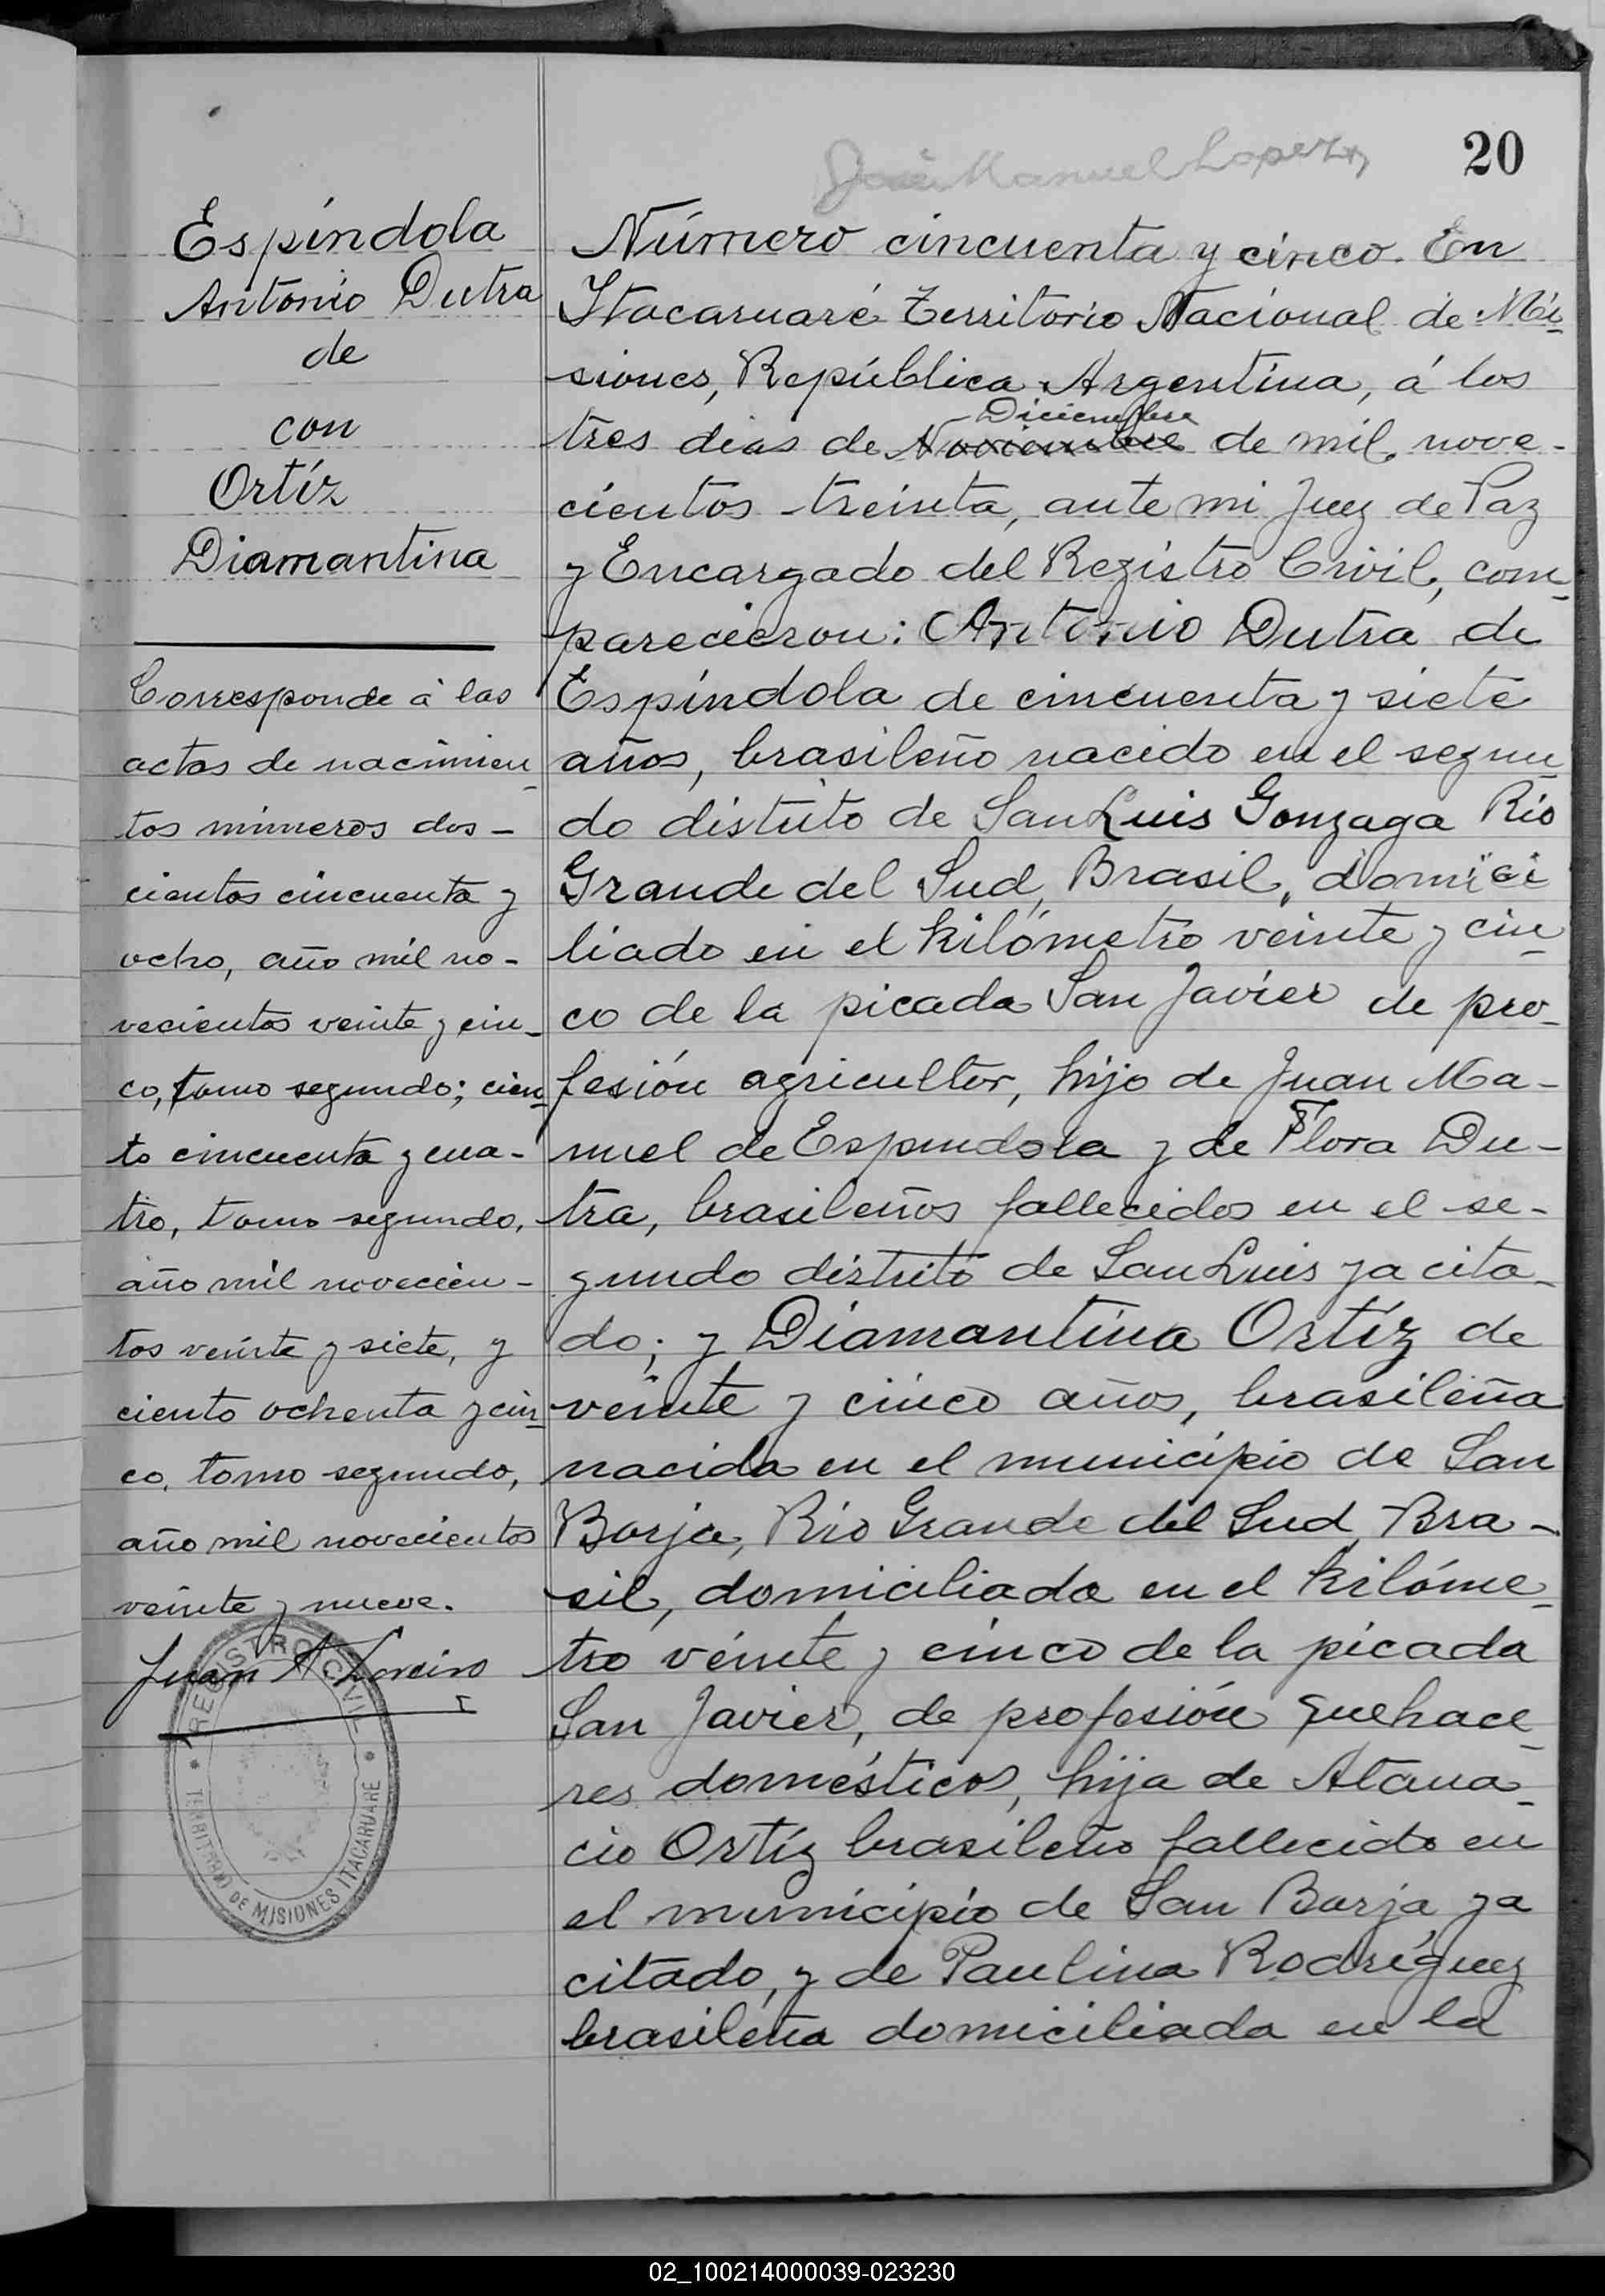 20
José Manuel Lopez
Espíndola
Antonio Dutra
de
con
Ortíz
Diamantina
Corresponde á las
actas de nacimien
tos números dos-
cientos cincuenta y
ocho, año mil no-
vecientos veinte y cin-
co, tomo segundo; cien
to cincuenta y cua-
tro, tomo segundo,
año mil novecien-
tos veinte y siete, y
ciento ochenta y cin
co, tomo segundo,
año mil novecientos
veinte y nueve.
Juan A.
REGISTRO CIVIL
TERRITORIO DE MISIONES ITACARUARE
Número cincuenta y cinco. En
Itacaruaré Territorio Nacional de Mi-
siones, República Argentina, á los
Diciembre
tres dias de Noviembre de mil nove-
cientos treinta, ante mi Juez de Paz
y Encargado del Registro Civil, com-
parecieron: Antonio Dutra de
Espíndola de cincuenta y siete
años, brasileño nacido en el segun
do distrito de San Luis Gonzaga Rio
Grande del Sud, Brasil, domici
liado en el kilómetro veinte y cin
co de la picada San Javier de pro-
fesión agricultor, hijo de Juan Ma-
nuel de Espindola y de Flora Du-
tra, brasileños fallecidos en el se-
gundo distrito de San Luis ya cita-
do; y Diamantina Ortíz de
veinte y cinco años, brasileña
nacida en el municipio de San
Borja, Rio Grande del Sud, Bra-
sil, domiciliada en el kilóme-
tro veinte y cinco de la picada
San Javier, de profesión quehace-
res domésticos, hija de Atana-
cio Ortíz brasileño fallecido en
el municipio de San Borja ya
citado, y de Paulina Rodríguez
brasileña domiciliada en la
02_100214000039-023230